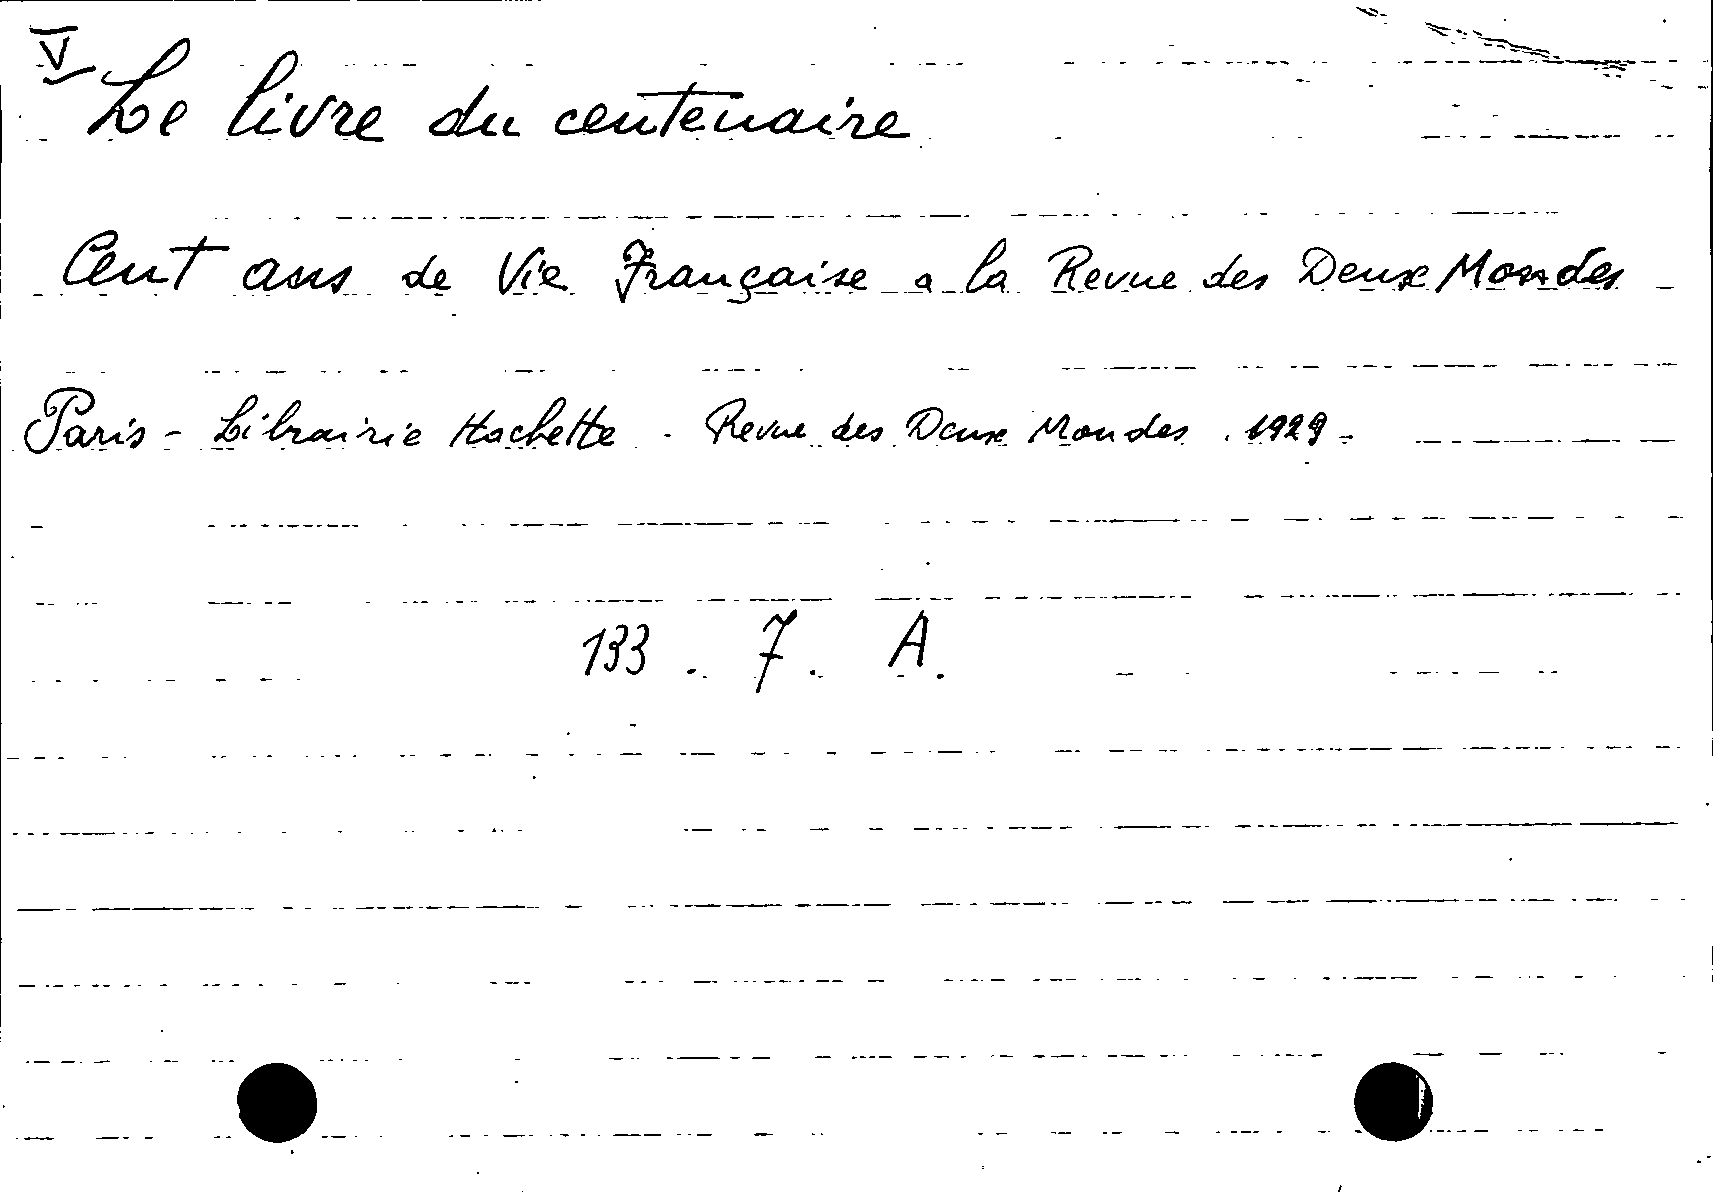 V
Le livre du centenaire
Cent ans de Vie Française a la Revue des Deux Mondes
Paris - Librairie Hachette - Revue des Deux Mondes . 1929 -
133 . 7 . A.